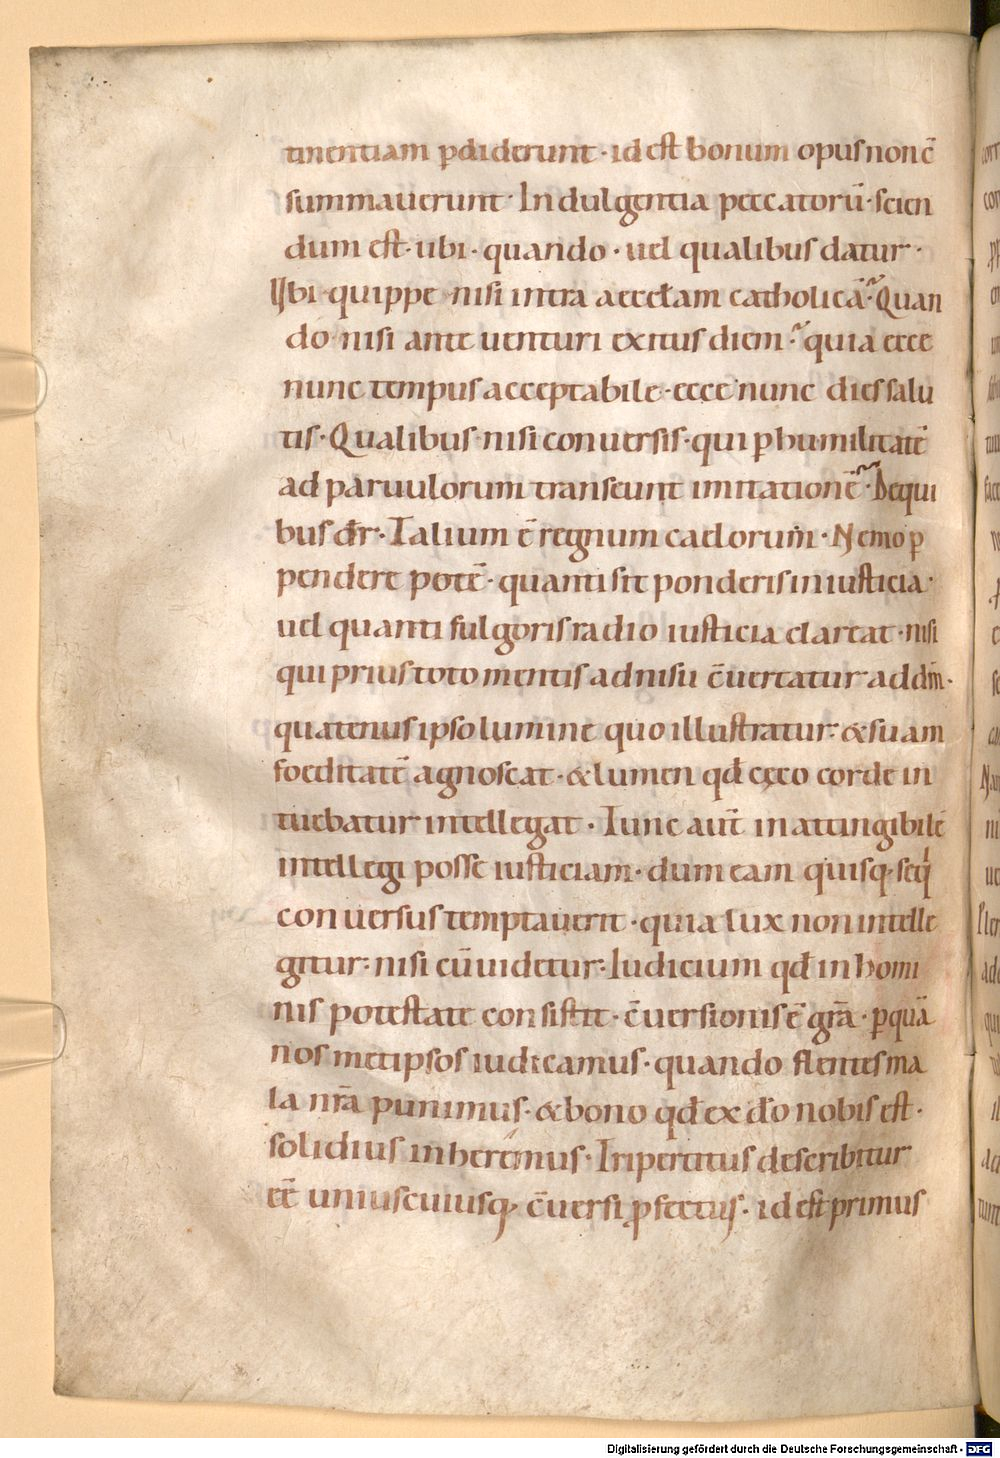 tinentiam p̄diderunt · id est bonum opus non c̄
summauerunt · Indulgentia peccatorū · scien
dum est · ubi · quando · uel qualibus datur ·
Ubi quippe · nisi intra aecclam catholicā · Quan
do · nisi ante uenturi exitus diem · quia ecce
nunc tempus acceptabile · ecce nunc dies salu
tis · Qualibus · nisi conuersis · qui p̄ humilitatē
ad paruulorum transeunt imitationē · De qui
bus dr̄ · Talium ē regnum caelorum · Nemo p̄
pendere potē · quanti sit ponderis iniusticia ·
uel quanti fulgoris radio iusticia clareat · nisi
qui prius toto mentis adnisu c̄uertatur ad dm̄ ·
quatenus ipso lumine quo illustratur · & suam
foeditatē agnoscat · & lumen qđ cęco corde in
tuebatur intellegat · Tunc aut̄ inattingibilē
intellegi posse iusticiam · dum eam quisq; seq̇
conuersus temptauerit · quia lux non intelle
gitur · nisi cū uidetur · Iudicium qđ in homi
nis potestate consistit · c̄uersionis ē gr̄a · p̄ quā
nos metipsos iudicamus · quando flentes ma
la nr̄a punimus · & bono qđ ex do nobis est ·
solidius inheremus · Tripertitus describitur
eē uniuscuiusq; c̄uersi profectus · id est primus
Digitalisierung gefördert durch die Deutsche Forschungsgemeinschaft - DFG